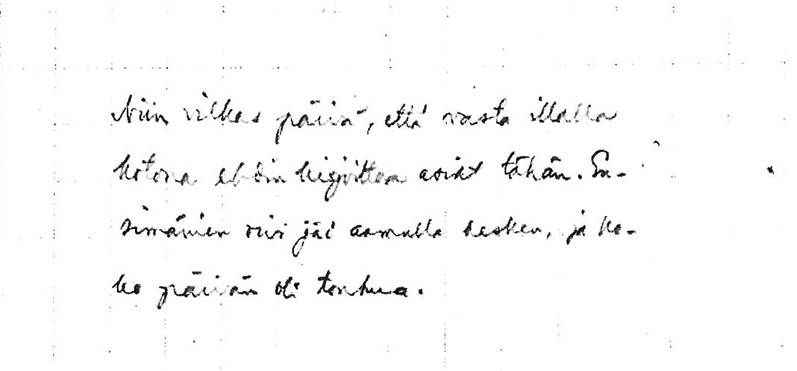 Niin vilkas päivä, että vasta illalla
kotona ehdin kirjoittaa asiat tähän. En-
simäinen rivi jäi aamulla kesken, ja ko-
ko päivän oli touhua.